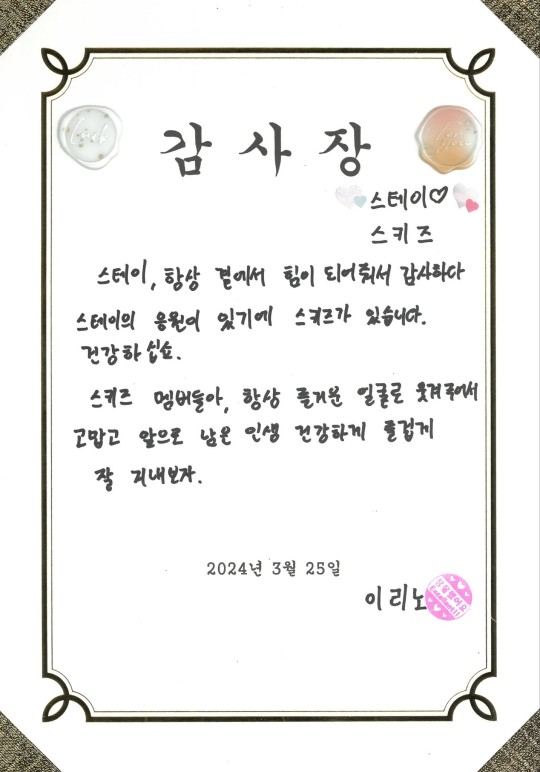 감사장
스테이♡
스키즈
스테이, 항상 곁에서 힘이 되어줘서 감사하다
스테이의 응원이 있기에 스키즈가 있습니다.
건강하십쇼.
스키즈 멤버들아, 항상 즐거운 얼굴로 웃겨주어서
고맙고 앞으로 남은 인생 건강하게 즐겁게
잘 지내보자.
2024년 3월 25일
이리노
참 잘했어요
Excellent!!